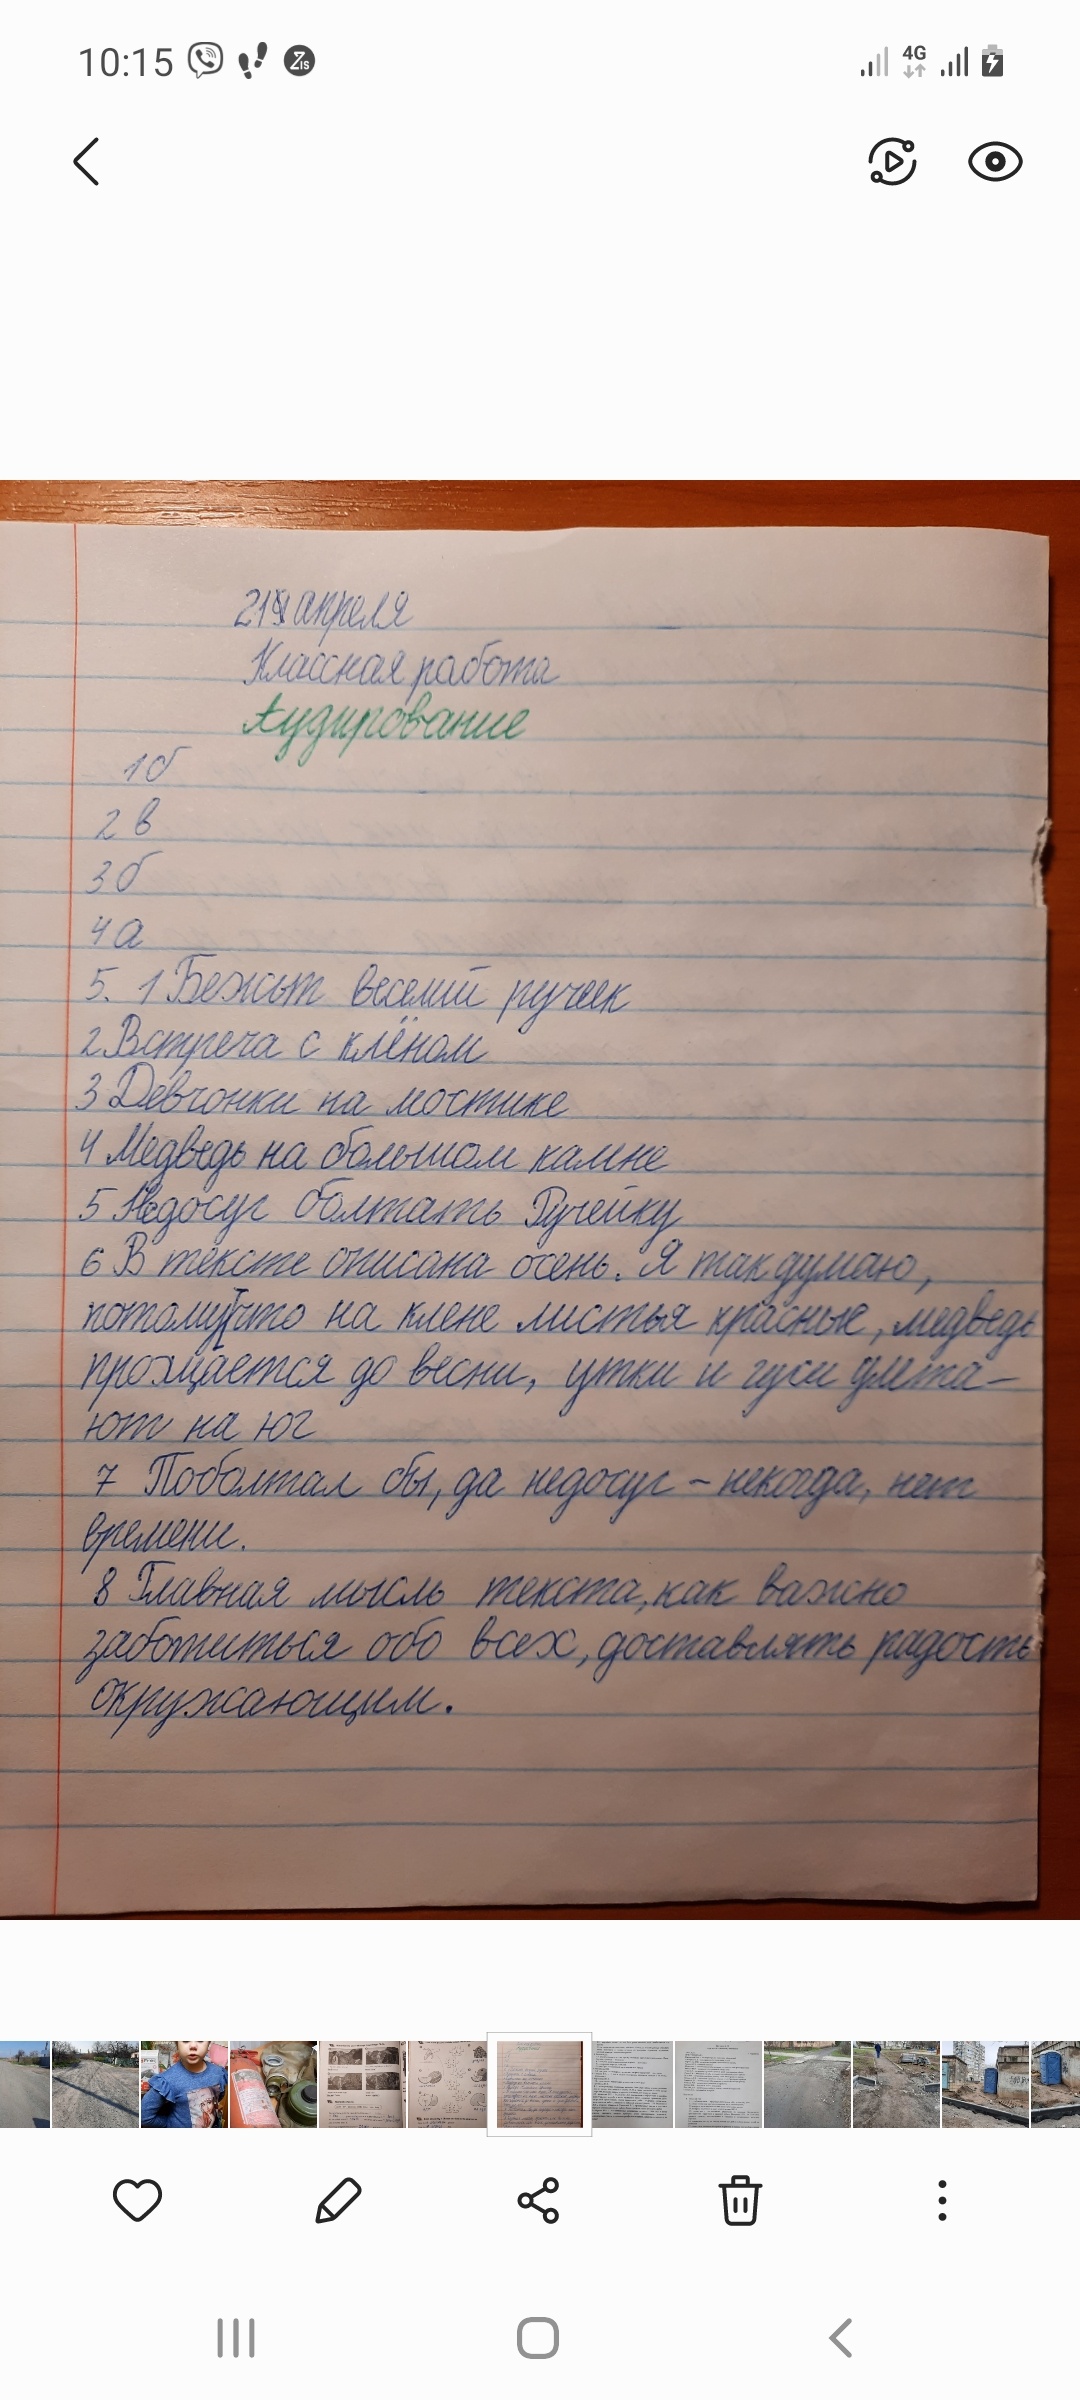 10:15
4G
21 апреля
Классная работа
Аудирование
1б
2 в
3 б
4 а
5. 1 Бежыт веселий ручеек
2 Встреча с клёном
3 Девчонки на мостике
4 Медведь на большом камне
5 Недосуг болтать Ручейку
6 В тексте описана осень. Я так думаю,
потомучто на клене листья красные, медведь
прощается до весни, утки и гуси улета-
ют на юг
7 Поболтал бы, да недосуг - некогда, нет
времени.
8 Главная мысль текста, как важно
заботиться обо всех, доставлять радость
окружающим.